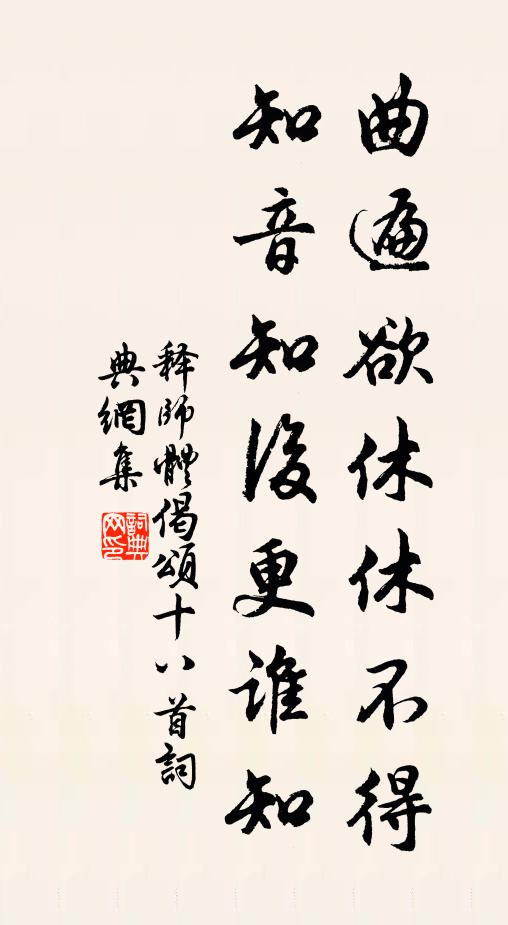 曲遍欲休休不得
知音知後更谁知
释師體偈頌十八首詞
典網集
詞典网印